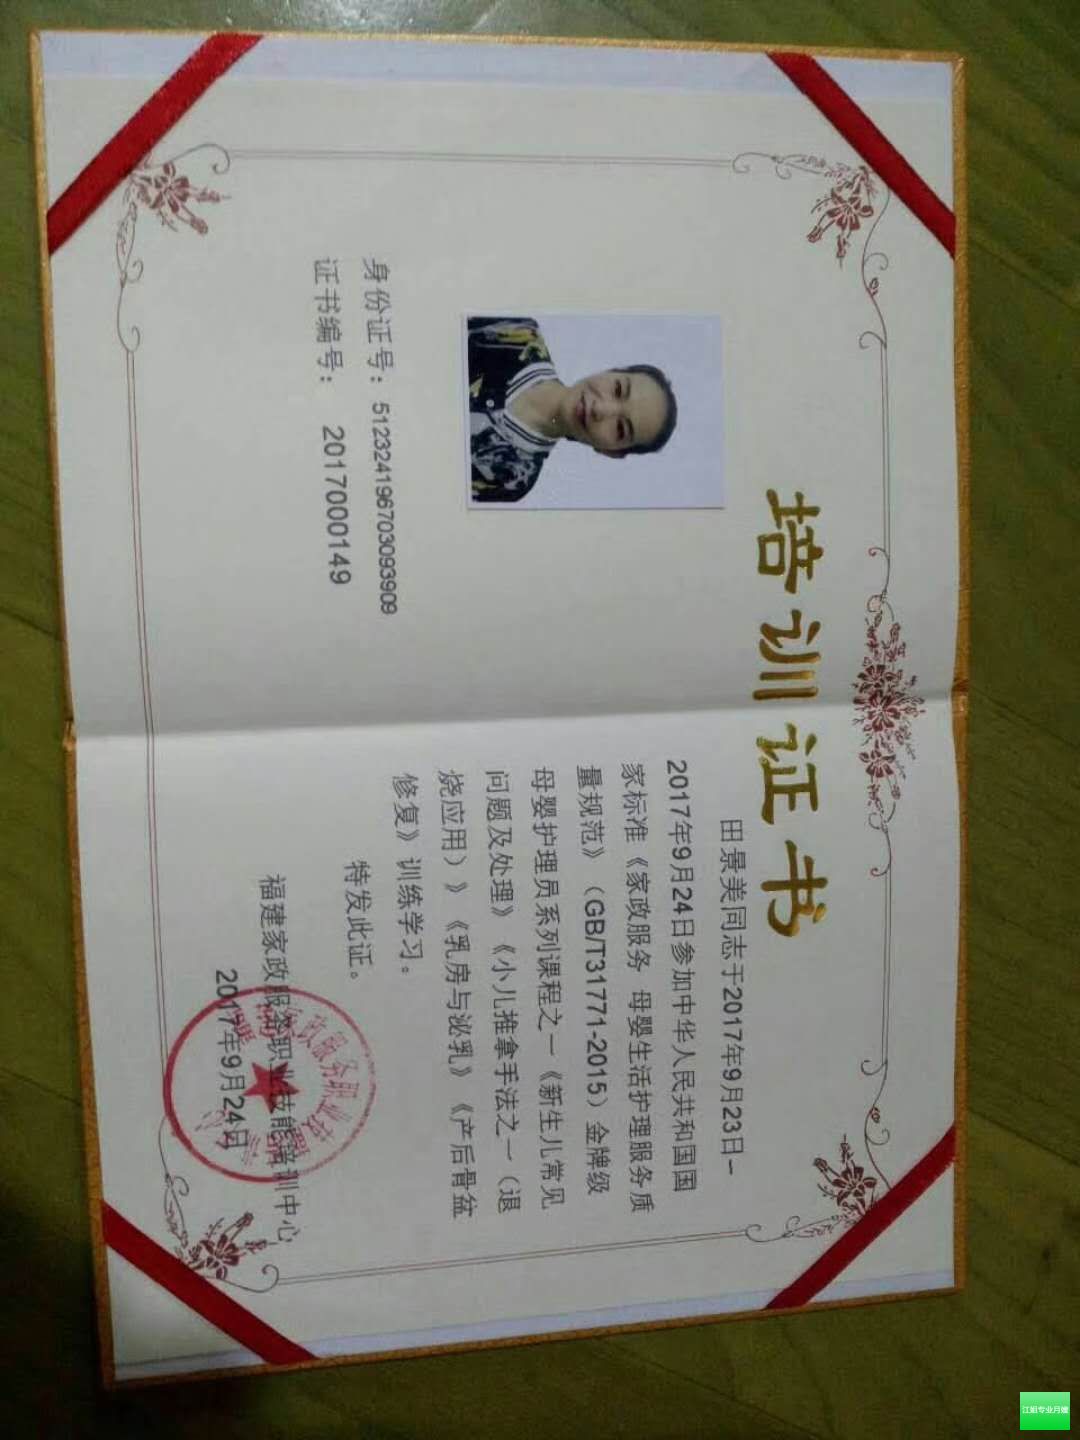 培训证书
身份证号：512324196703093909
证书编号： 2017000149
田景美同志于2017年9月23日—
2017年9月24日参加中华人民共和国国
家标准《家政服务 母婴生活护理服务质
量规范》（GB/T31771-2015）金牌级
母婴护理员系列课程之一《新生儿常见
问题及处理》《小儿推拿手法之一（退
烧应用）》《乳房与泌乳》《产后骨盆
修复》训练学习。
特发此证。
福建家政服务职业技能培训中心
2017年9月24日
江姐专业月嫂